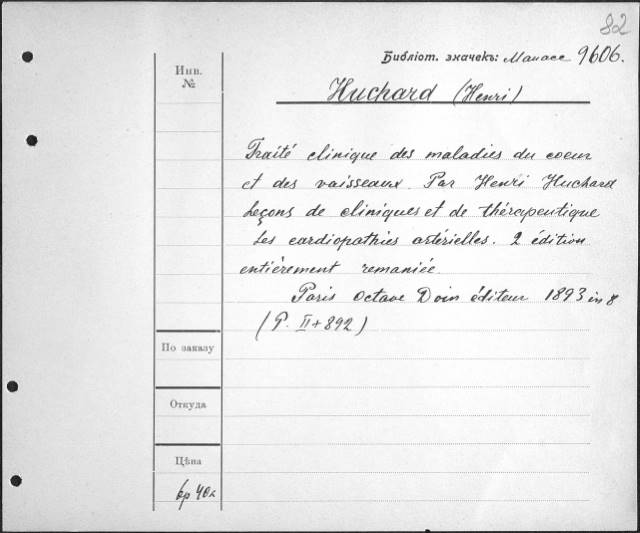 82
Библіот. значекъ: Манасе 9606.
Инв.
№
Huchard (Henri)
Traité clinique des maladies du coeur
et des vaisseaux. Par Henri Huchard
Leçons de cliniques et de thérapeutique
Les cardiopathies artérielles. 2 édition
entiérement remaniée.
Paris Octave Doin éditeur 1893 in 8
(P. II+892)
По заказу
Откуда
Цѣна